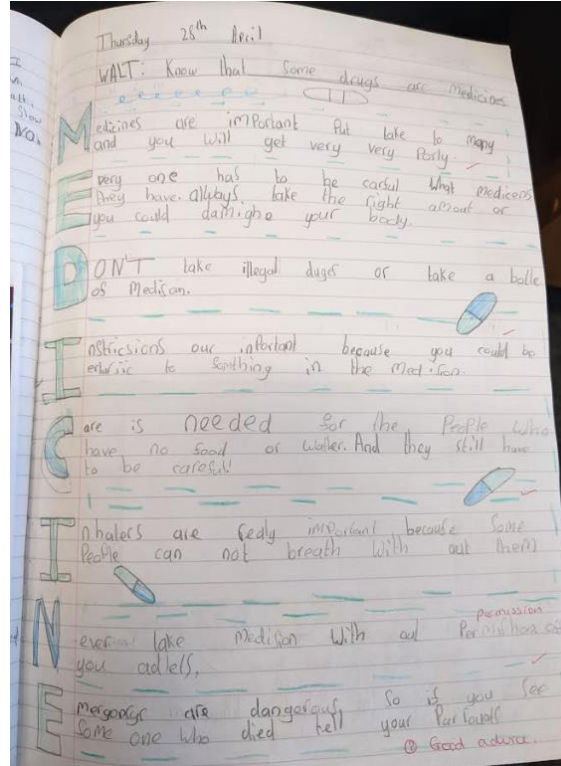 Thursday 28th April
WALT: Know that some drugs are medicines
Medicines are important Put take to many
and you will get very very Porly.
Every one has to be carful what medicens
they have. allways take the right amout or
you could damighe your body.
DON'T take illegal duges or take a bolle
of Medisan.
Instricsions our infortant because you could be
to Somthing in the Medison.
Care is needed for the People who
have no food or water. And they still have
to be careful!
Inhalers are redly important because Some
People can not breath With out them
permission
Never take Medison With out
you adlels.
are dangerous So if you See
Some one who died tell your
Good advice.
I
Slow
NO